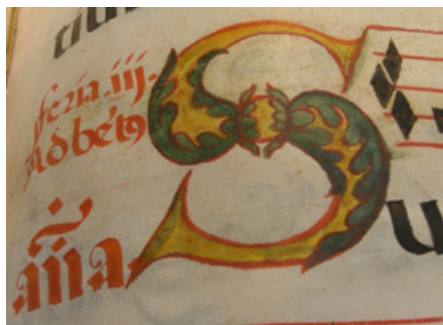 feria.iij.
Ad bét9
aña.
Su